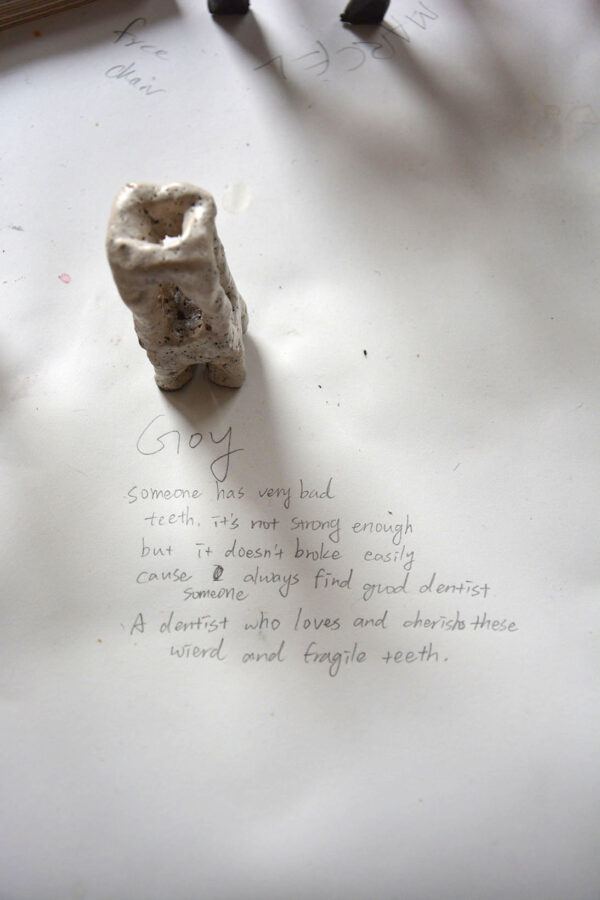 free
chair
MARCEL
Goy
someone has very bad
teeth. it's not strong enough
but it doesn't broke easily
cause always find good dentist
someone
A dentist who loves and cherish these
wierd and fragile teeth.